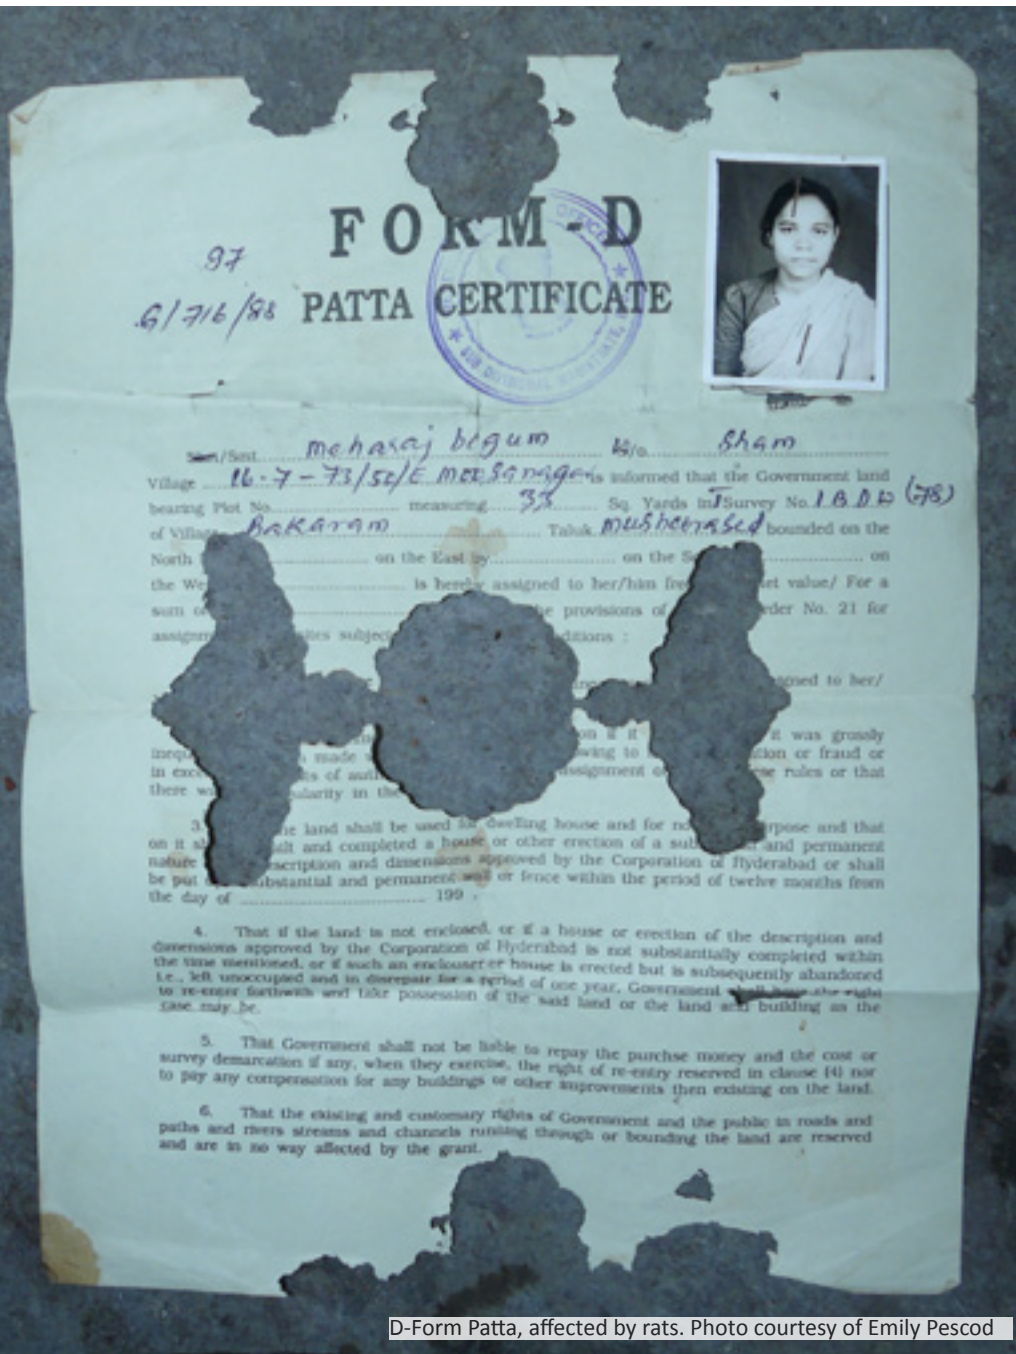 FORM-D
PATTA CERTIFICATE
97
G/716/88
OFFICER
SUB DIVISIONAL
/Smt. Meharaj begum /o. Sham
Village 16-7-73/50/E Moosanagar is informed that the Government land
bearing Plot No. measuring 33 Sq. Yards in Survey No. 1 B D W (78)
of Village Bakaram Taluk Musheerabad bounded on the
North on the East by on the on
the is hereby assigned to her/him value/ For a
sum provisions of No. 21 for
:
to her/
it it was grossly
made to or fraud or
in of rules or that
there in
3. land shall be used for dwelling house and for and that
on it and completed a house or other erection of a and permanent
nature and dimensions approved by the Corporation of Hyderabad or shall
be put substantial and permanent wall or fence within the period of twelve months from
the day of 199 .
4. That if the land is not enclosed, or if a house or erection of the description and
dimensions approved by the Corporation of Hyderabad is not substantially completed within
the time mentioned, or if such an enclouser or house is erected but is subsequently abandoned
i.e., left unoccupied and in disrepair for a period of one year, Government shall have the right
to re-enter forthwith and take possession of the said land or the land and building as the
case may be.
5. That Government shall not be liable to repay the purchse money and the cost or
survey demarcation if any, when they exercise, the right of re-entry reserved in clause (4) nor
to pay any compensation for any buildings or other improvements then existing on the land.
6. That the existing and customary rights of Government and the public in roads and
paths and rivers streams and channels running through or bounding the land are reserved
and are in no way affected by the grant.
D-Form Patta, affected by rats. Photo courtesy of Emily Pescod